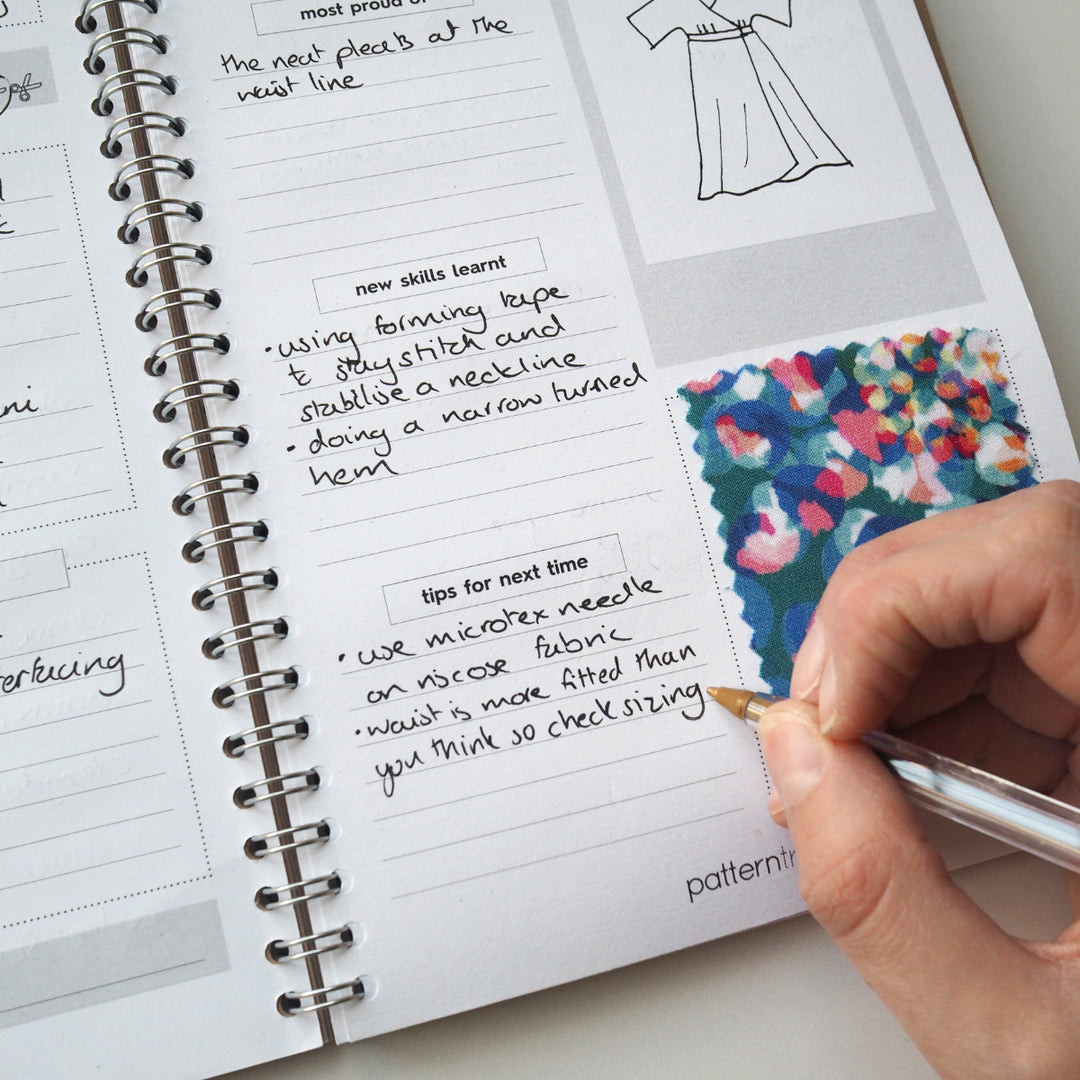 most proud of
the neat pleats at the
waist line
new skills learnt
• using forming tape
to staystitch and
stabilise a neckline
• doing a narrow turned
hem
tips for next time
• use microtex needle
on viscose fabric
• waist is more fitted than
you think so check sizing